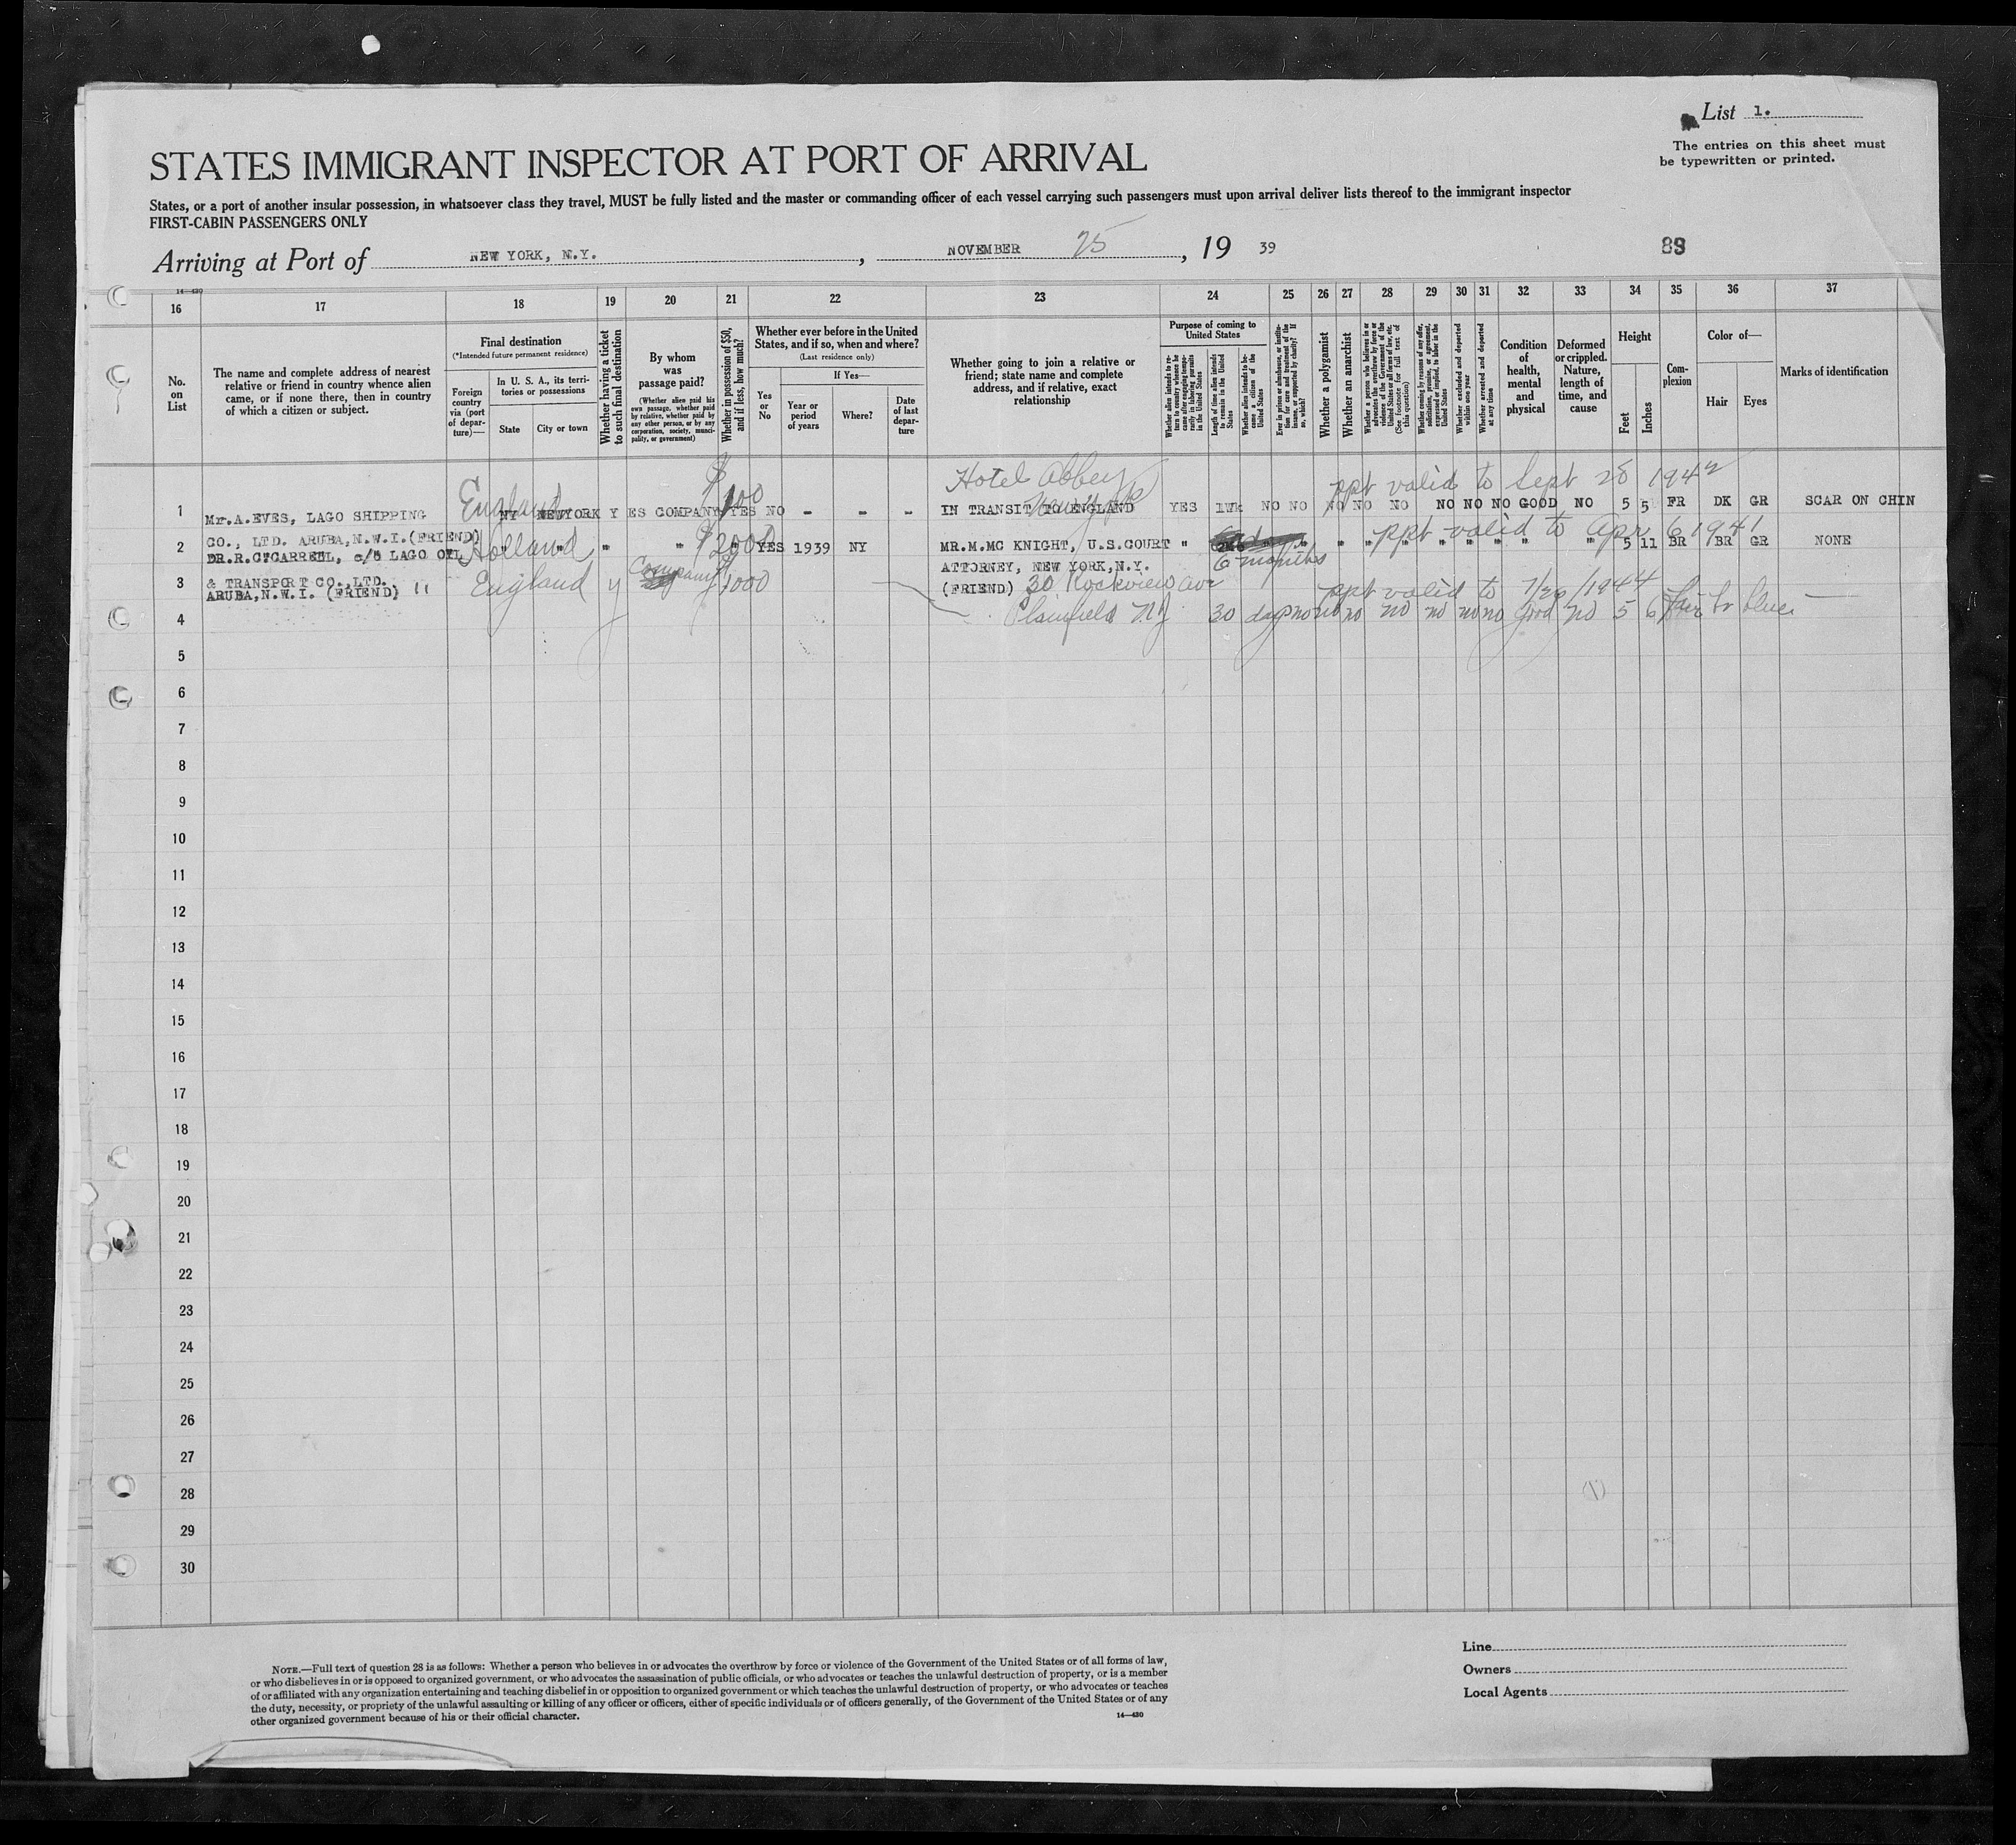 List 1.
The entries on this sheet must
be typewritten or printed.
STATES IMMIGRANT INSPECTOR AT PORT OF ARRIVAL
States, or a port of another insular possession, in whatsoever class they travel, MUST be fully listed and the master or commanding officer of each vessel carrying such passengers must upon arrival deliver lists thereof to the immigrant inspector
FIRST-CABIN PASSENGERS ONLY
Arriving at Port of NEW YORK, N.Y., NOVEMBER 25, 19 39
14—430
16 17 18 19 20 21 22 23 24 25 26 27 28 29 30 31 32 33 34 35 36 37
No. on List
The name and complete address of nearest
relative or friend in country whence alien
came, or if none there, then in country
of which a citizen or subject.
Final destination
(*Intended future permanent residence)
Foreign
country
via (port
of depar-
ture)—
In U. S. A., its terri-
tories or possessions
State
City or town
Whether having a ticket
to such final destination
By whom
was
passage paid?
(Whether alien paid his
own passage, whether paid
by relative, whether paid by
any other person, or by any
corporation, society, munici-
pality, or government)
Whether in possession of $50,
and if less, how much?
Whether ever before in the United
States, and if so, when and where?
(Last residence only)
Yes
or
No
If Yes—
Year or
period
of years
Where?
Date
of last
depar-
ture
Whether going to join a relative or
friend; state name and complete
address, and if relative, exact
relationship
Purpose of coming to
United States
Whether alien intends to re-
turn to country whence he
came after engaging tempo-
rarily in laboring pursuits
in the United States
Length of time alien intends
to remain in the United
States
Whether alien intends to be-
come a citizen of the
United States
Ever in prison or almshouse, or institu-
tion for care and treatment of the
insane, or supported by charity? If
so, which?
Whether a polygamist
Whether an anarchist
Whether a person who believes in or
advocates the overthrow by force or
violence of the Government of the
United States or all forms of law, etc.
(See footnote for full text of
this question)
Whether coming by reasons of any offer,
solicitation, promise, or agreement,
expressed or implied, to labor in the
United States
Whether excluded and deported
within one year
Whether arrested and deported
at any time
Condition
of
health,
mental
and
physical
Deformed
or crippled.
Nature,
length of
time, and
cause
Height
Feet
Inches
Com-
plexion
Color of—
Hair
Eyes
Marks of identification
England $100 Hotel Abbey ppt valid to Sept 28 1942
1 Mr.A.EVES, LAGO SHIPPING NY NEWYORK Y ES COMPANY YES NO - - - IN TRANSIT TO ENGLAND YES 1WK NO NO NO NO NO NO NO NO GOOD NO 5 5 FR DK GR SCAR ON CHIN
CO., LTD. ARUBA,N.W.I.(FRIEND)
Holland $2000 ppt valid to Apr 6 1941
2 DR.R.C.CARRELL, c/o LAGO OIL " " " " " YES 1939 NY MR.M.MC KNIGHT, U.S.COURT " " " " " " " " " " " 5 11 BR BR GR NONE
6 months
3 & TRANSPORT CO.,LTD. ATTORNEY, NEW YORK,N.Y.
ARUBA,N.W.I. (FRIEND) " England y Company $1000 (FRIEND) 30 Rockview Ave ppt valid to 7/20/1944
4 Plainfield NJ 30 days no no no no no no no good no 5 6 fair br blue —
5
6
7
8
9
10
11
12
13
14
15
16
17
18
19
20
21
22
23
24
25
26
27
28
29
30
NOTE.—Full text of question 28 is as follows: Whether a person who believes in or advocates the overthrow by force or violence of the Government of the United States or of all forms of law,
or who disbelieves in or is opposed to organized government, or who advocates the assassination of public officials, or who advocates or teaches the unlawful destruction of property, or is a member
of or affiliated with any organization entertaining and teaching disbelief in or opposition to organized government or which teaches the unlawful destruction of property, or who advocates or teaches
the duty, necessity, or propriety of the unlawful assaulting or killing of any officer or officers, either of specific individuals or of officers generally, of the Government of the United States or of any
other organized government because of his or their official character.
14—430
Line
Owners
Local Agents